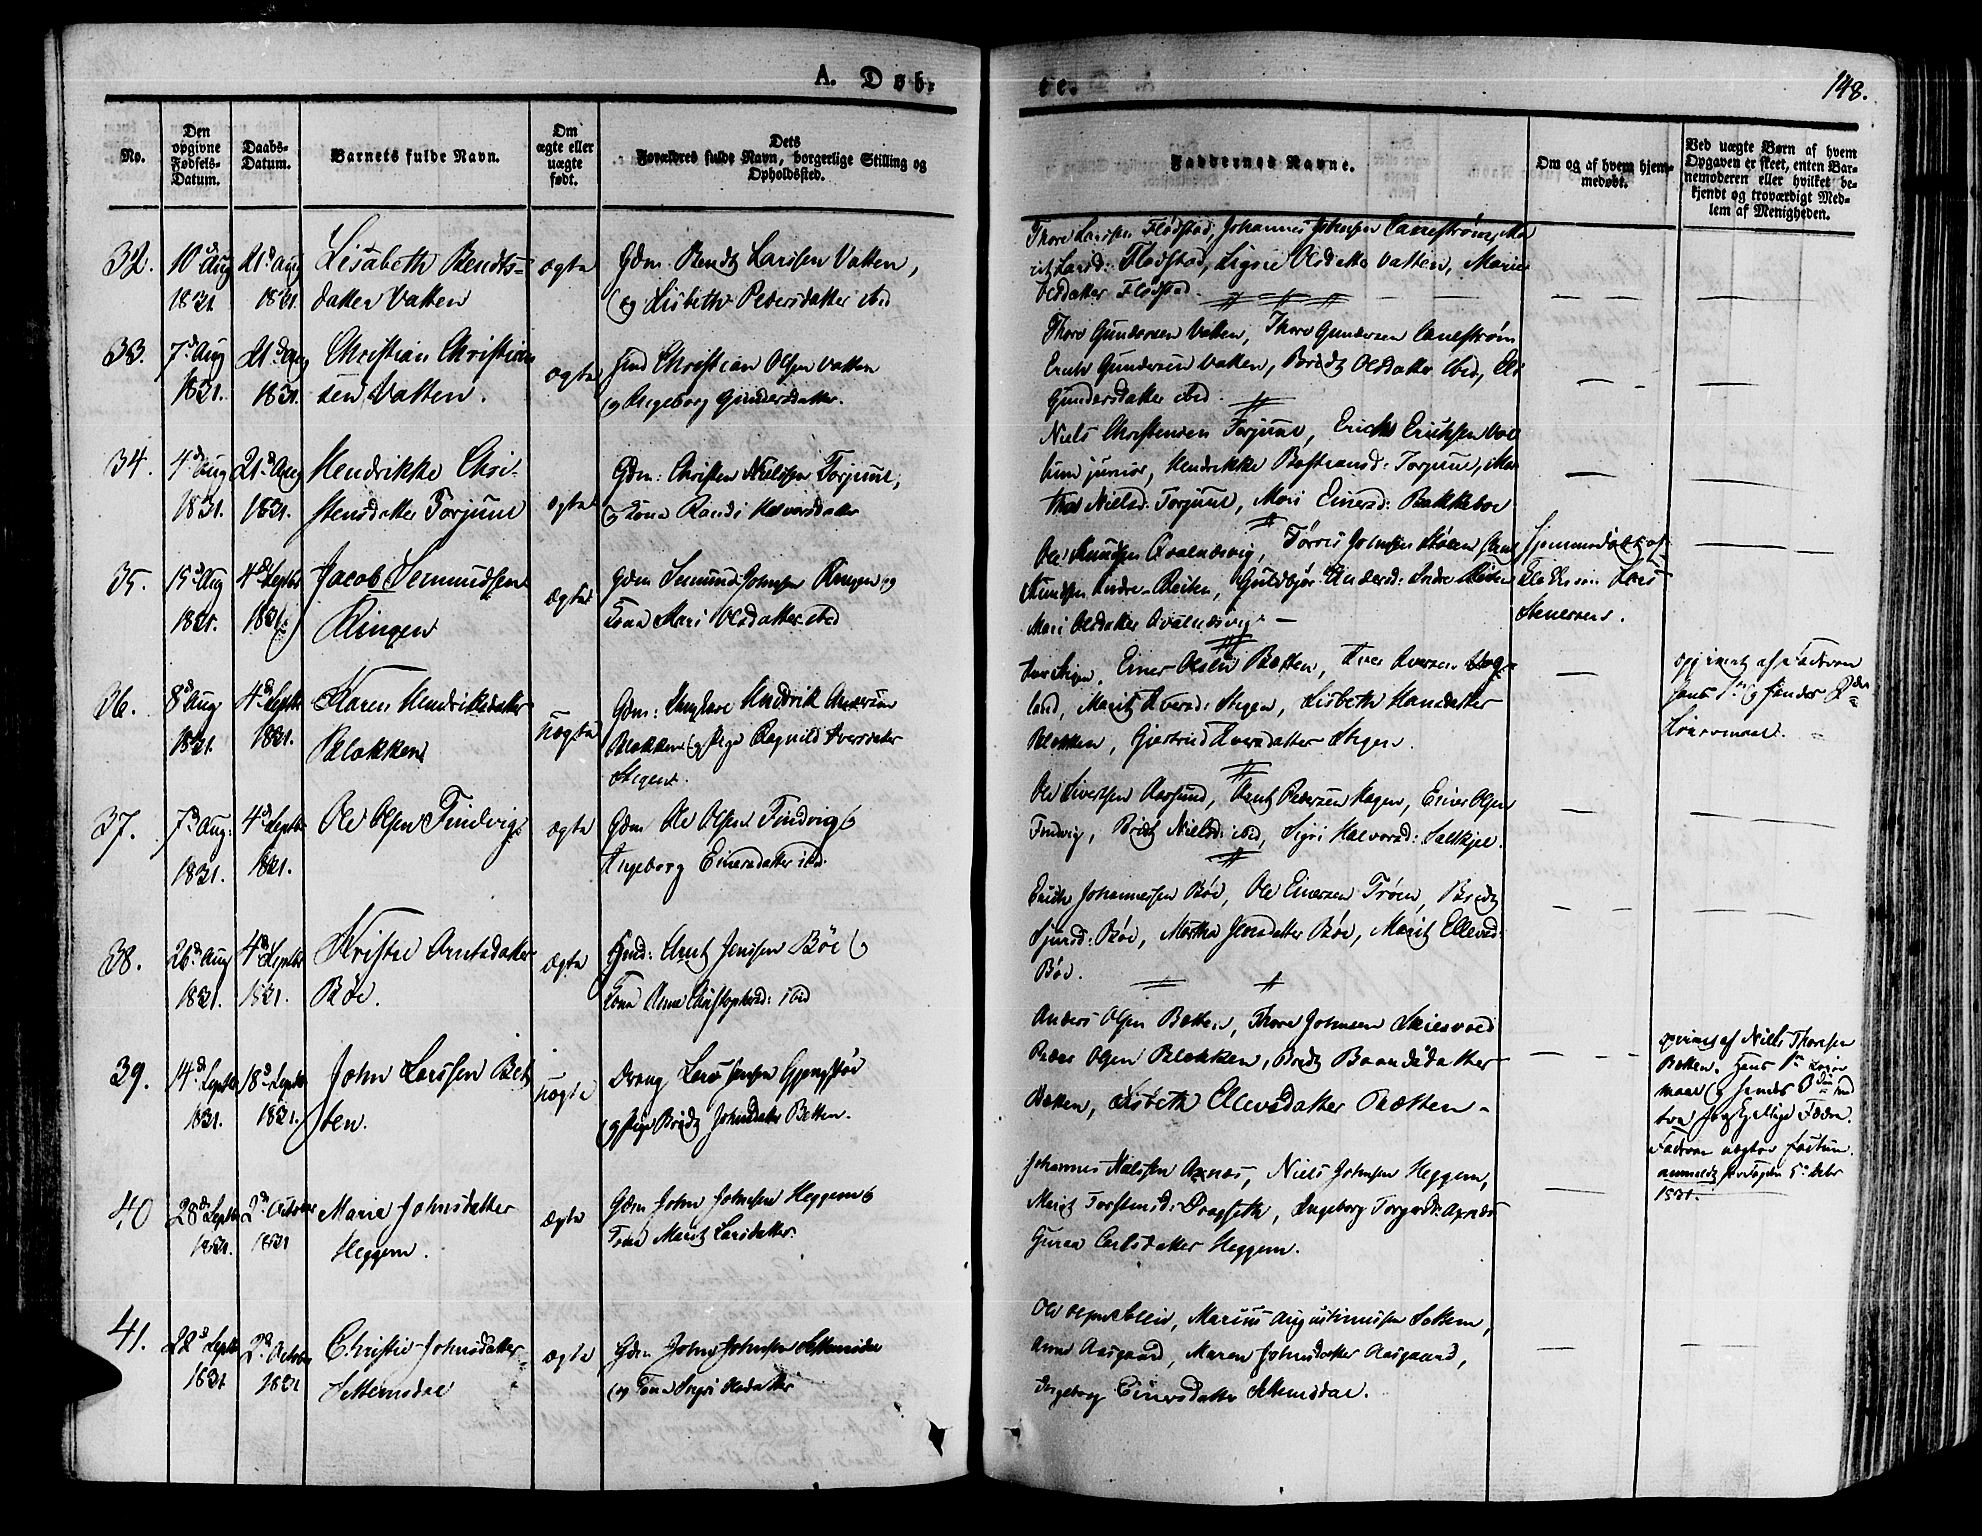 A. Døb-
te.
148.
No.
Den opgivne Fødsels-Datum.
Daabs-Datum.
Barnets fulde Navn.
Om ægte eller uægte født.
Dets Forældres fulde Navn, borgerlige Stilling og Opholdssted.
Faddernes Navne.
Om og af hvem hjemmedøbt.
Ved uægte Børn af hvem Opgaven er skeet, enten Barnemoderen eller hvilket bekjendt og troværdigt Medlem af Menigheden.
32.
10d Aug
1831.
21d Aug
1831.
Lisabeth Bendts-
datter Vatten
ægte
Gdm. Bendt Larssen Vatten,
og Lisbeth Pedersdatter ibid
Thore Larssen Flødstad, Johannes Johnsen Canestrøm, Ma
rit Larsd: Flødstad, Sigrie Olsdatter Vatten, Marie
Olsdatter Flødstad.
33.
7d Aug
1831.
21d Aug
1831.
Christian Christian
sen Vatten.
ægte
Christian Olsen Vatten
og Ingeborg Gundersdatter.
Thore Gundersen Vatten, Thore Gundersen Canestrøm
Erich Gundersen Vatten, Beredt Olsdatter ibid,
Gundersdatter ibid.
34.
4d Aug
1831.
21d Aug
1831.
Hendrikke Chri-
stensdatter Torjuul
ægte
Gdm: Christen Nielssen Torjuul,
og Kona Randi Halvorsdatter
Niels Christensen Torjuul, Erich Erichsen
junior, Hendrikke Bastiansd: Torjuul, Mar
tha Nielsd: Torjuul, Mari Einersd: Bakkeboe
35.
15d Aug
1831.
4d Septbr
1831.
Jacob Semundsen
Ringen
ægte
Gdm Semund Johnsen Ringen og
Kona Mari Olsdatter ibid
Ole Knudsen Qvalnæsvig, Tørris Johnsen
Knudsen Indre-Reiten, Guldbjør Andersd: Indre Reiten
Mari Olsdatter Qvalnæsvig. —
Hjemmedøbt af
36.
8d Aug
1831.
4d Septbr
1831.
Karen Hendriksdatter
Blakken
uægte
Gdm: Ungkare Hendrik Andersen
Blakken og Pige Ragnild Iversdatter
Stigen.
Iver Stigen, Einer Olsen Botten, Iver Iversen
land, Marit Iversd: Stigen, Lisbeth Hansdatter
Blakken, Giertrud Iversdatter Stigen.
af Fadren
Hans 1ste og Hendes 2den
Leiermaal.
37.
7d Aug:
1831.
4d Septbr
1831.
Ole Olsen Findvig
ægte
Gdm Ole Olsen Findvig &
Ingeborg Einersdatter ibd.
Ole Sivertsen Aarsund, Arnt Pedersen Hagen, Einer Olsen
Findvig, Beredt Nielsd: ibid, Sigri Halvorsd: Saltkjel.
38.
26d Aug
1831.
4d Septbr
1831.
Kristie Arntsdatter
Bøe.
ægte
Arnt Jenssen Bøe &
Kona Anne Christophersd: ibid
Erich Johannessen Bøe, Ole Einersen Trøen, Beredt
Sjursd: Bøe, Martha Jensdatter Bøe, Marit Ellevsd:
Bøe.
39.
14d Septbr
1831.
18d Septbr
1831.
John Larssen Bet
ten.
uægte
Dreng Lars Jensen
og Pige Beredt Johnsdatter Betten.
Anders Olsen Betten, Thore Johnsen
Peder Olsen Blakken, Beredt Baardsdatter
Betten, Lisbeth Ellevsdatter Betten -
af Niels Thoresen
Betten. Hans 1ste Leier
maal og Hendes 2den
Fadren
anmeldt Fogden 5te Octbr
1831.
40
28d Septbr
1831.
2d October
1831
Marie Johnsdatter
Heggem.
ægte
Gdm John Johnsen Heggem &
Kona Marit Larsdatter.
Johannes Axnæs, Niels Johnsen Heggem,
Marit Torstensd: Dragseth, Ingeborg Axnæs
Guraa Carlsdatter Heggem.
41.
22d Septbr
1831
2d October
1831
Christie Johnsdatter
Settemsdal
ægte
Gdm John Johnsen Settemsdal
og Kona Sigri Olsdatter
Ole Olsen Marius Augustinussen Settem,
Anne Aasgaard, Maren Johnsdatter Aasgaard,
Ingeborg Einersdatter Settemsdal.